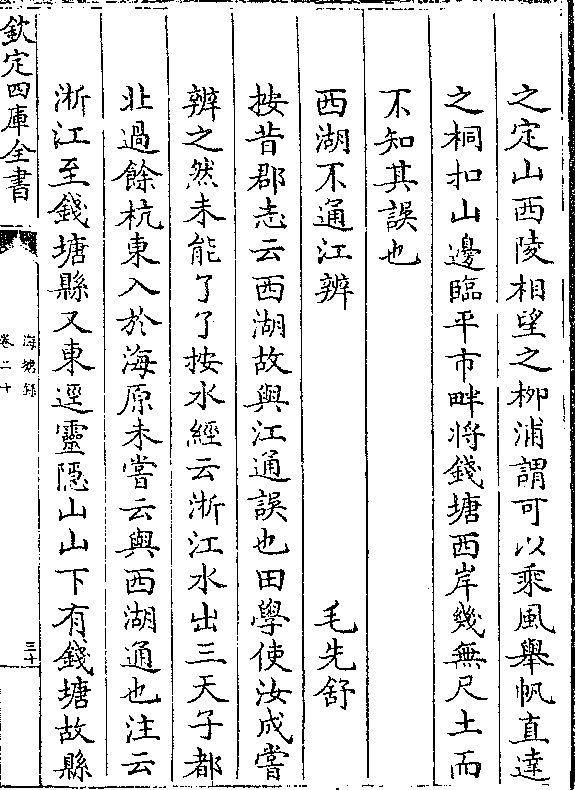 之定山西陵相望之柳浦謂可以乘風舉帆直達
之桐扣山邊臨平市畔將錢塘西岸幾無尺土而
不知其誤也
西湖不通江辨　毛先舒
按昔郡志云西湖故與江通誤也田學使汝成嘗
辨之然未能了了按水經云浙江水出三天子都
北過餘杭東入於海原未嘗云與西湖通也注云
浙江至錢塘縣又東逕靈隱山山下有錢塘故縣
欽定四庫全書
海塘録
卷二十
三十